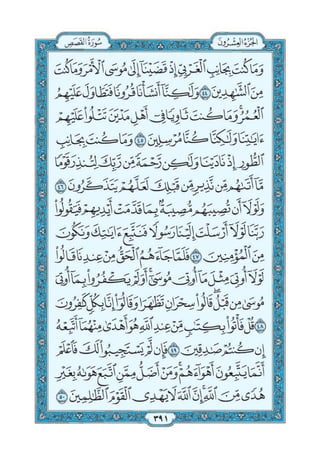 الجزء العشرون سورة القصص
وَمَا كُنتَ بِجَانِبِ ٱلْغَرْبِىِّ إِذْ قَضَيْنَآ إِلَىٰ مُوسَى ٱلْأَمْرَ وَمَا كُنتَ
مِنَ ٱلشَّـٰهِدِينَ ٤٤ وَلَـٰكِنَّآ أَنشَأْنَا قُرُونًا فَتَطَاوَلَ عَلَيْهِمُ
ٱلْعُمُرُ ۚ وَمَا كُنتَ ثَاوِيًا فِىٓ أَهْلِ مَدْيَنَ تَتْلُوا۟ عَلَيْهِمْ
ءَايَـٰتِنَا وَلَـٰكِنَّا كُنَّا مُرْسِلِينَ ٤٥ وَمَا كُنتَ بِجَانِبِ
ٱلطُّورِ إِذْ نَادَيْنَا وَلَـٰكِن رَّحْمَةً مِّن رَّبِّكَ لِتُنذِرَ قَوْمًا
مَّآ أَتَىٰهُم مِّن نَّذِيرٍ مِّن قَبْلِكَ لَعَلَّهُمْ يَتَذَكَّرُونَ ٤٦
وَلَوْلَآ أَن تُصِيبَهُم مُّصِيبَةٌۢ بِمَا قَدَّمَتْ أَيْدِيهِمْ فَيَقُولُوا۟
رَبَّنَا لَوْلَآ أَرْسَلْتَ إِلَيْنَا رَسُولًا فَنَتَّبِعَ ءَايَـٰتِكَ وَنَكُونَ
مِنَ ٱلْمُؤْمِنِينَ ٤٧ فَلَمَّا جَآءَهُمُ ٱلْحَقُّ مِنْ عِندِنَا قَالُوا۟
لَوْلَآ أُوتِىَ مِثْلَ مَآ أُوتِىَ مُوسَىٰٓ ۚ أَوَلَمْ يَكْفُرُوا۟ بِمَآ أُوتِىَ
مُوسَىٰ مِن قَبْلُ ۖ قَالُوا۟ سِحْرَانِ تَظَـٰهَرَا وَقَالُوٓا۟ إِنَّا بِكُلٍّ كَـٰفِرُونَ
٤٨ قُلْ فَأْتُوا۟ بِكِتَـٰبٍ مِّنْ عِندِ ٱللَّهِ هُوَ أَهْدَىٰ مِنْهُمَآ أَتَّبِعْهُ
إِن كُنتُمْ صَـٰدِقِينَ ٤٩ فَإِن لَّمْ يَسْتَجِيبُوا۟ لَكَ فَٱعْلَمْ
أَنَّمَا يَتَّبِعُونَ أَهْوَآءَهُمْ ۚ وَمَنْ أَضَلُّ مِمَّنِ ٱتَّبَعَ هَوَىٰهُ بِغَيْرِ
هُدًى مِّنَ ٱللَّهِ ۚ إِنَّ ٱللَّهَ لَا يَهْدِى ٱلْقَوْمَ ٱلظَّـٰلِمِينَ ٥٠
٣٩١